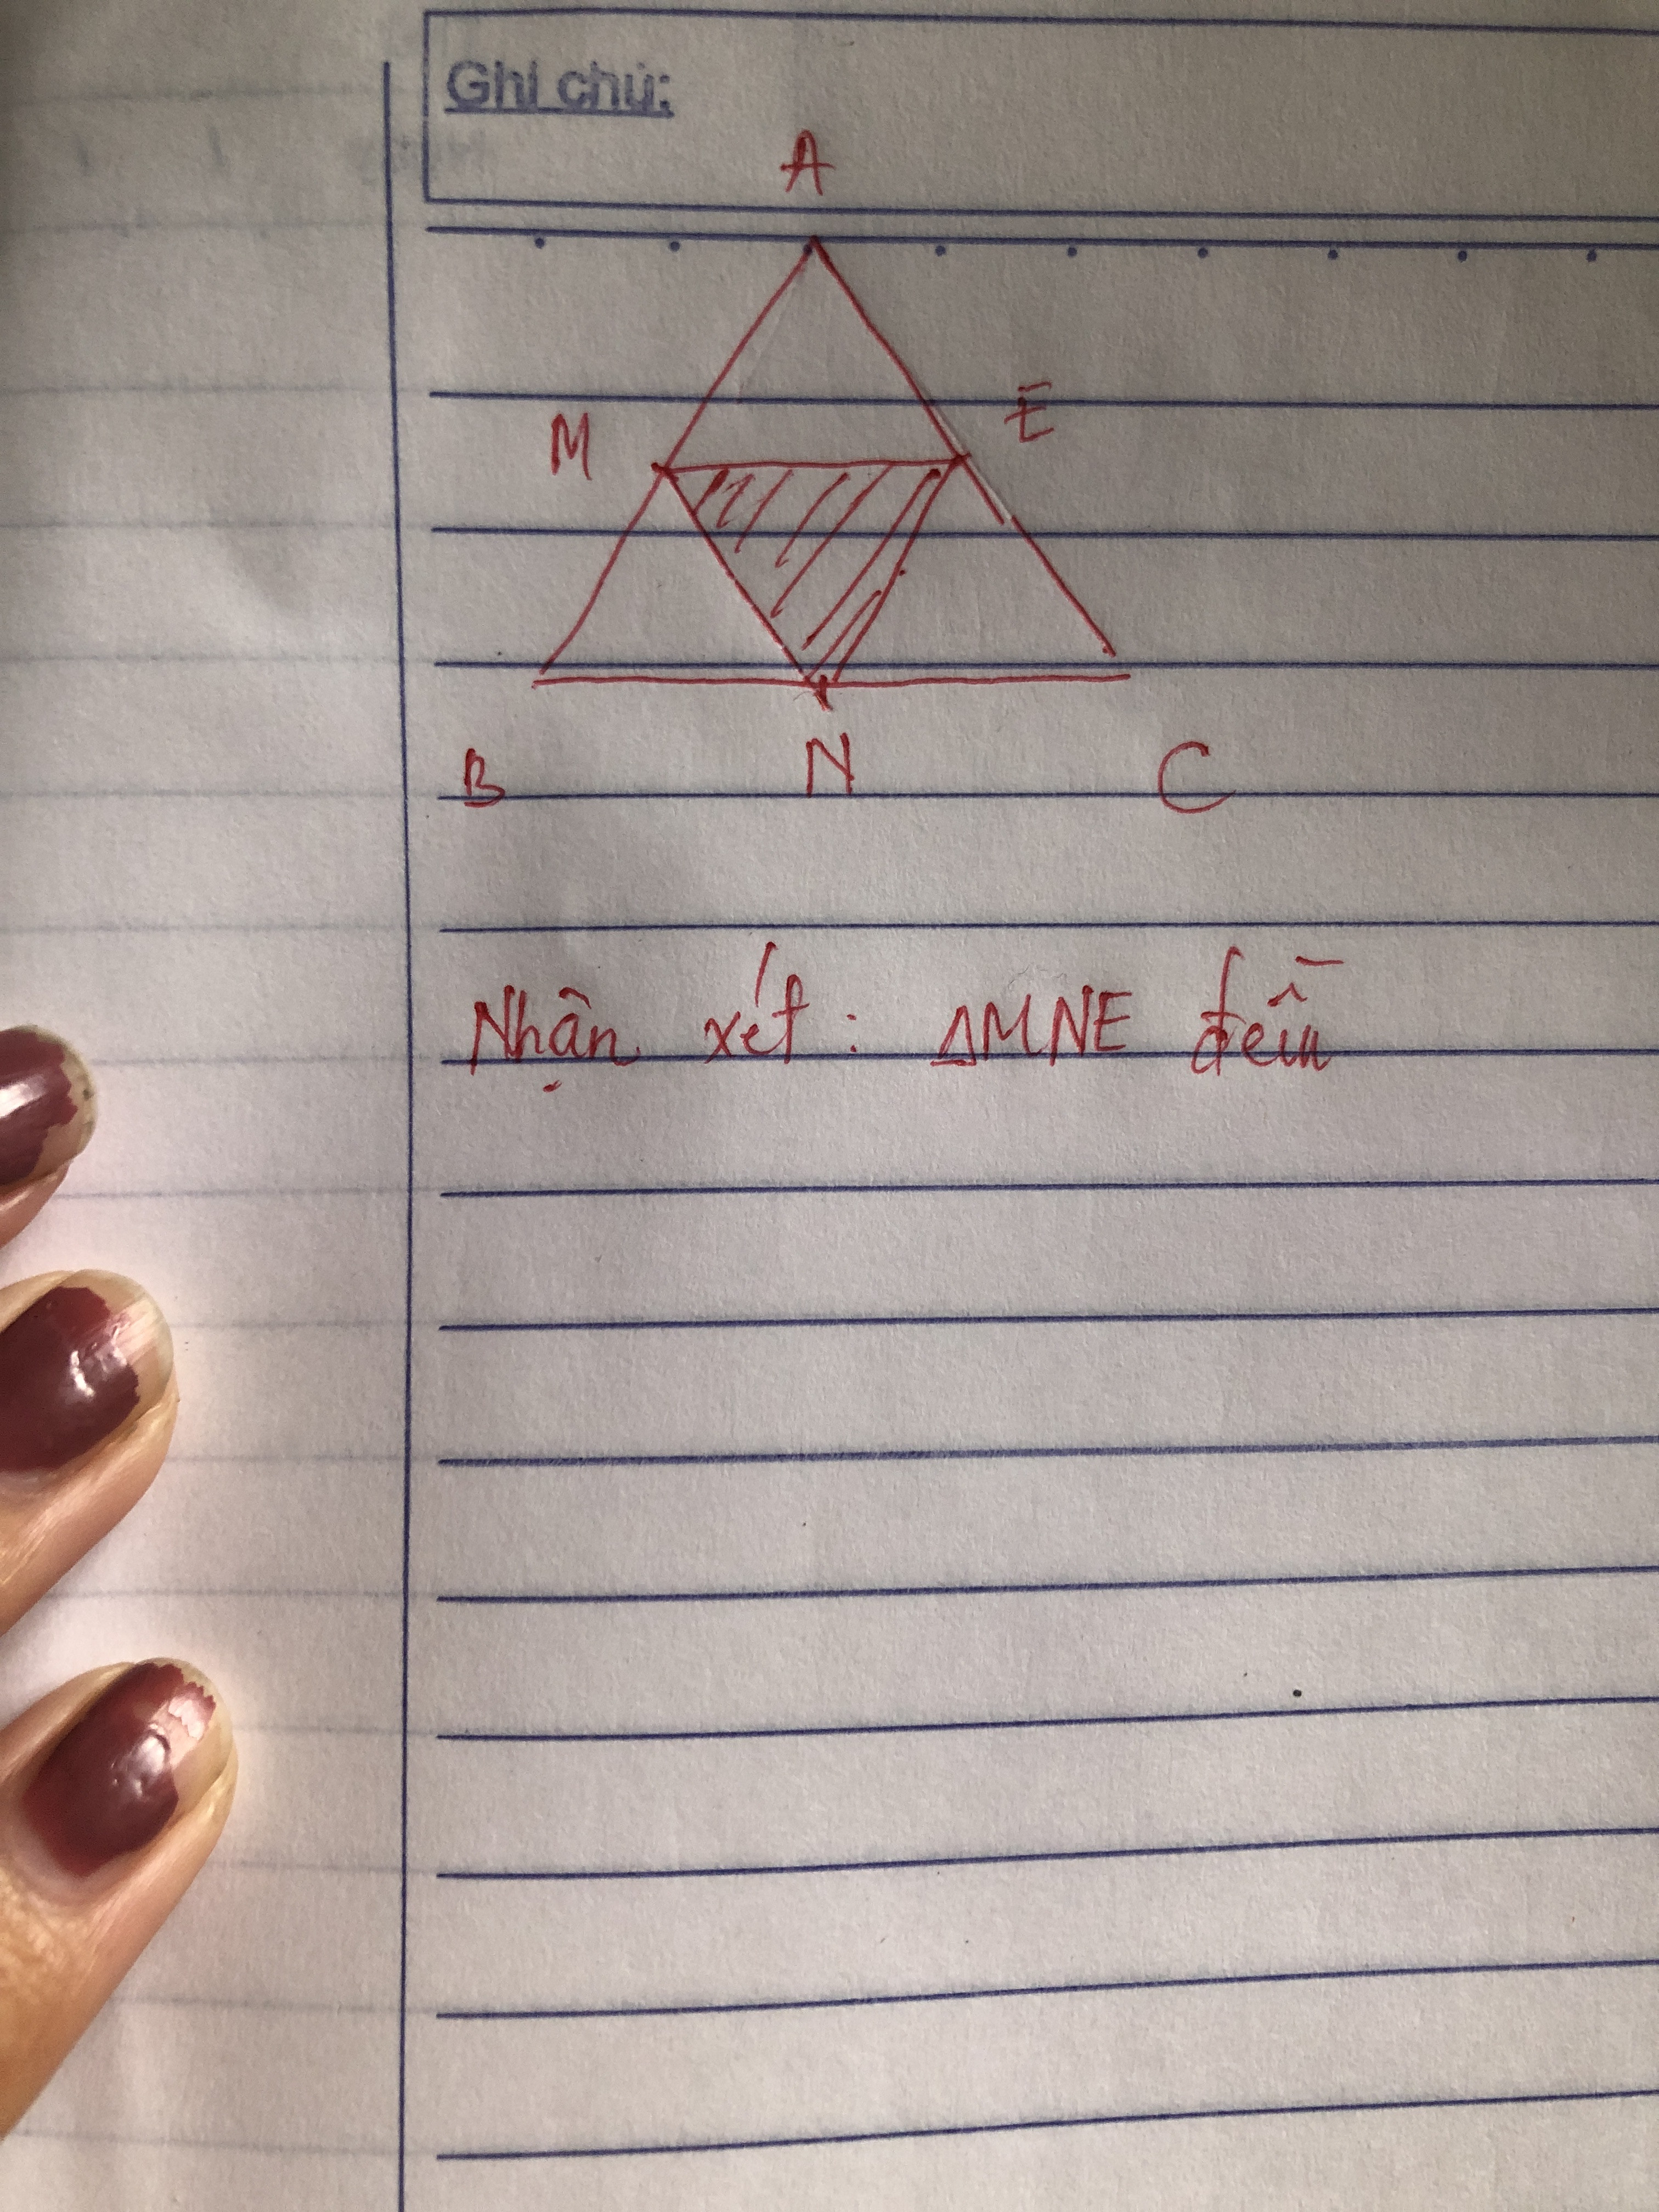 Ghi chú:
A
M E
B N C
Nhận xét: ΔMNE đều